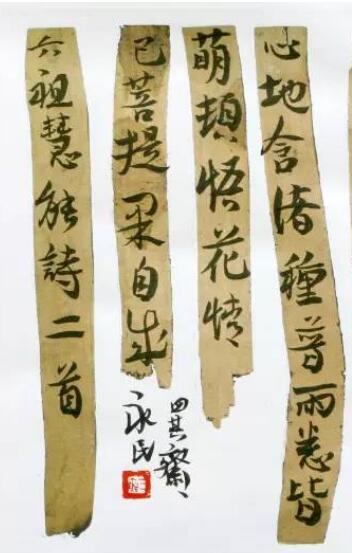 心地含诸種普雨悉皆
萌頓悟花情
已菩提果自成
六祖慧能詩二首
永民